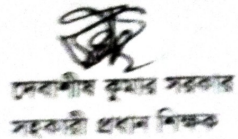 দেবাশীষ কুমার সরকার
সহকারী প্রধান শিক্ষক